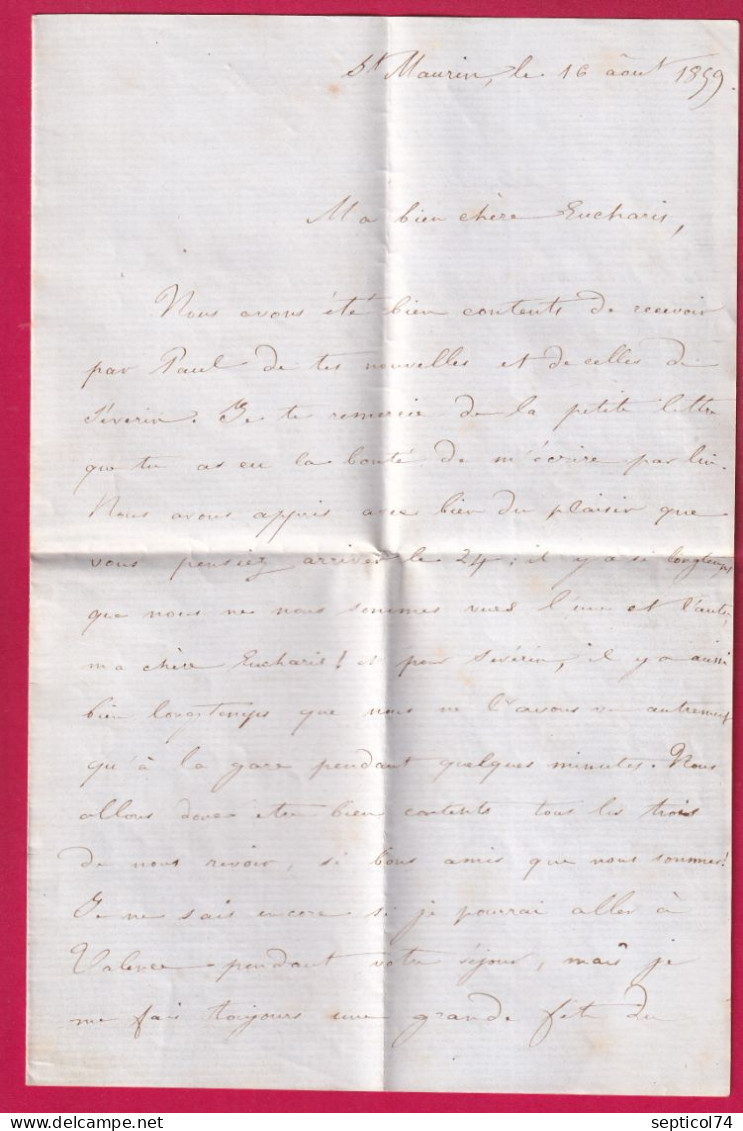 St Maurin, le 16 août 1859.
Ma bien chère Eucharis,
Nous avons été bien contents de recevoir
par Paul de tes nouvelles et de celles de
Séverin. Je te remercie de la petite lettre
que tu as eu la bonté de m'écrire par lui.
Nous avons appris avec bien du plaisir que
vous pensiez arriver le 24 ; il y a si longtemps
que nous ne nous sommes vues l'une et l'autre,
ma chère Eucharis ! et pour Sévérin, il y a aussi
bien longtemps que nous ne l'avons vu autrement
qu'à la gare pendant quelques minutes. Nous
allons donc être bien contents tous les trois
de nous revoir, si bons amis que nous sommes !
Je ne sais encore si je pourrai aller à
Valence pendant votre séjour, mais je
me fais toujours une grande fête du
septicol74